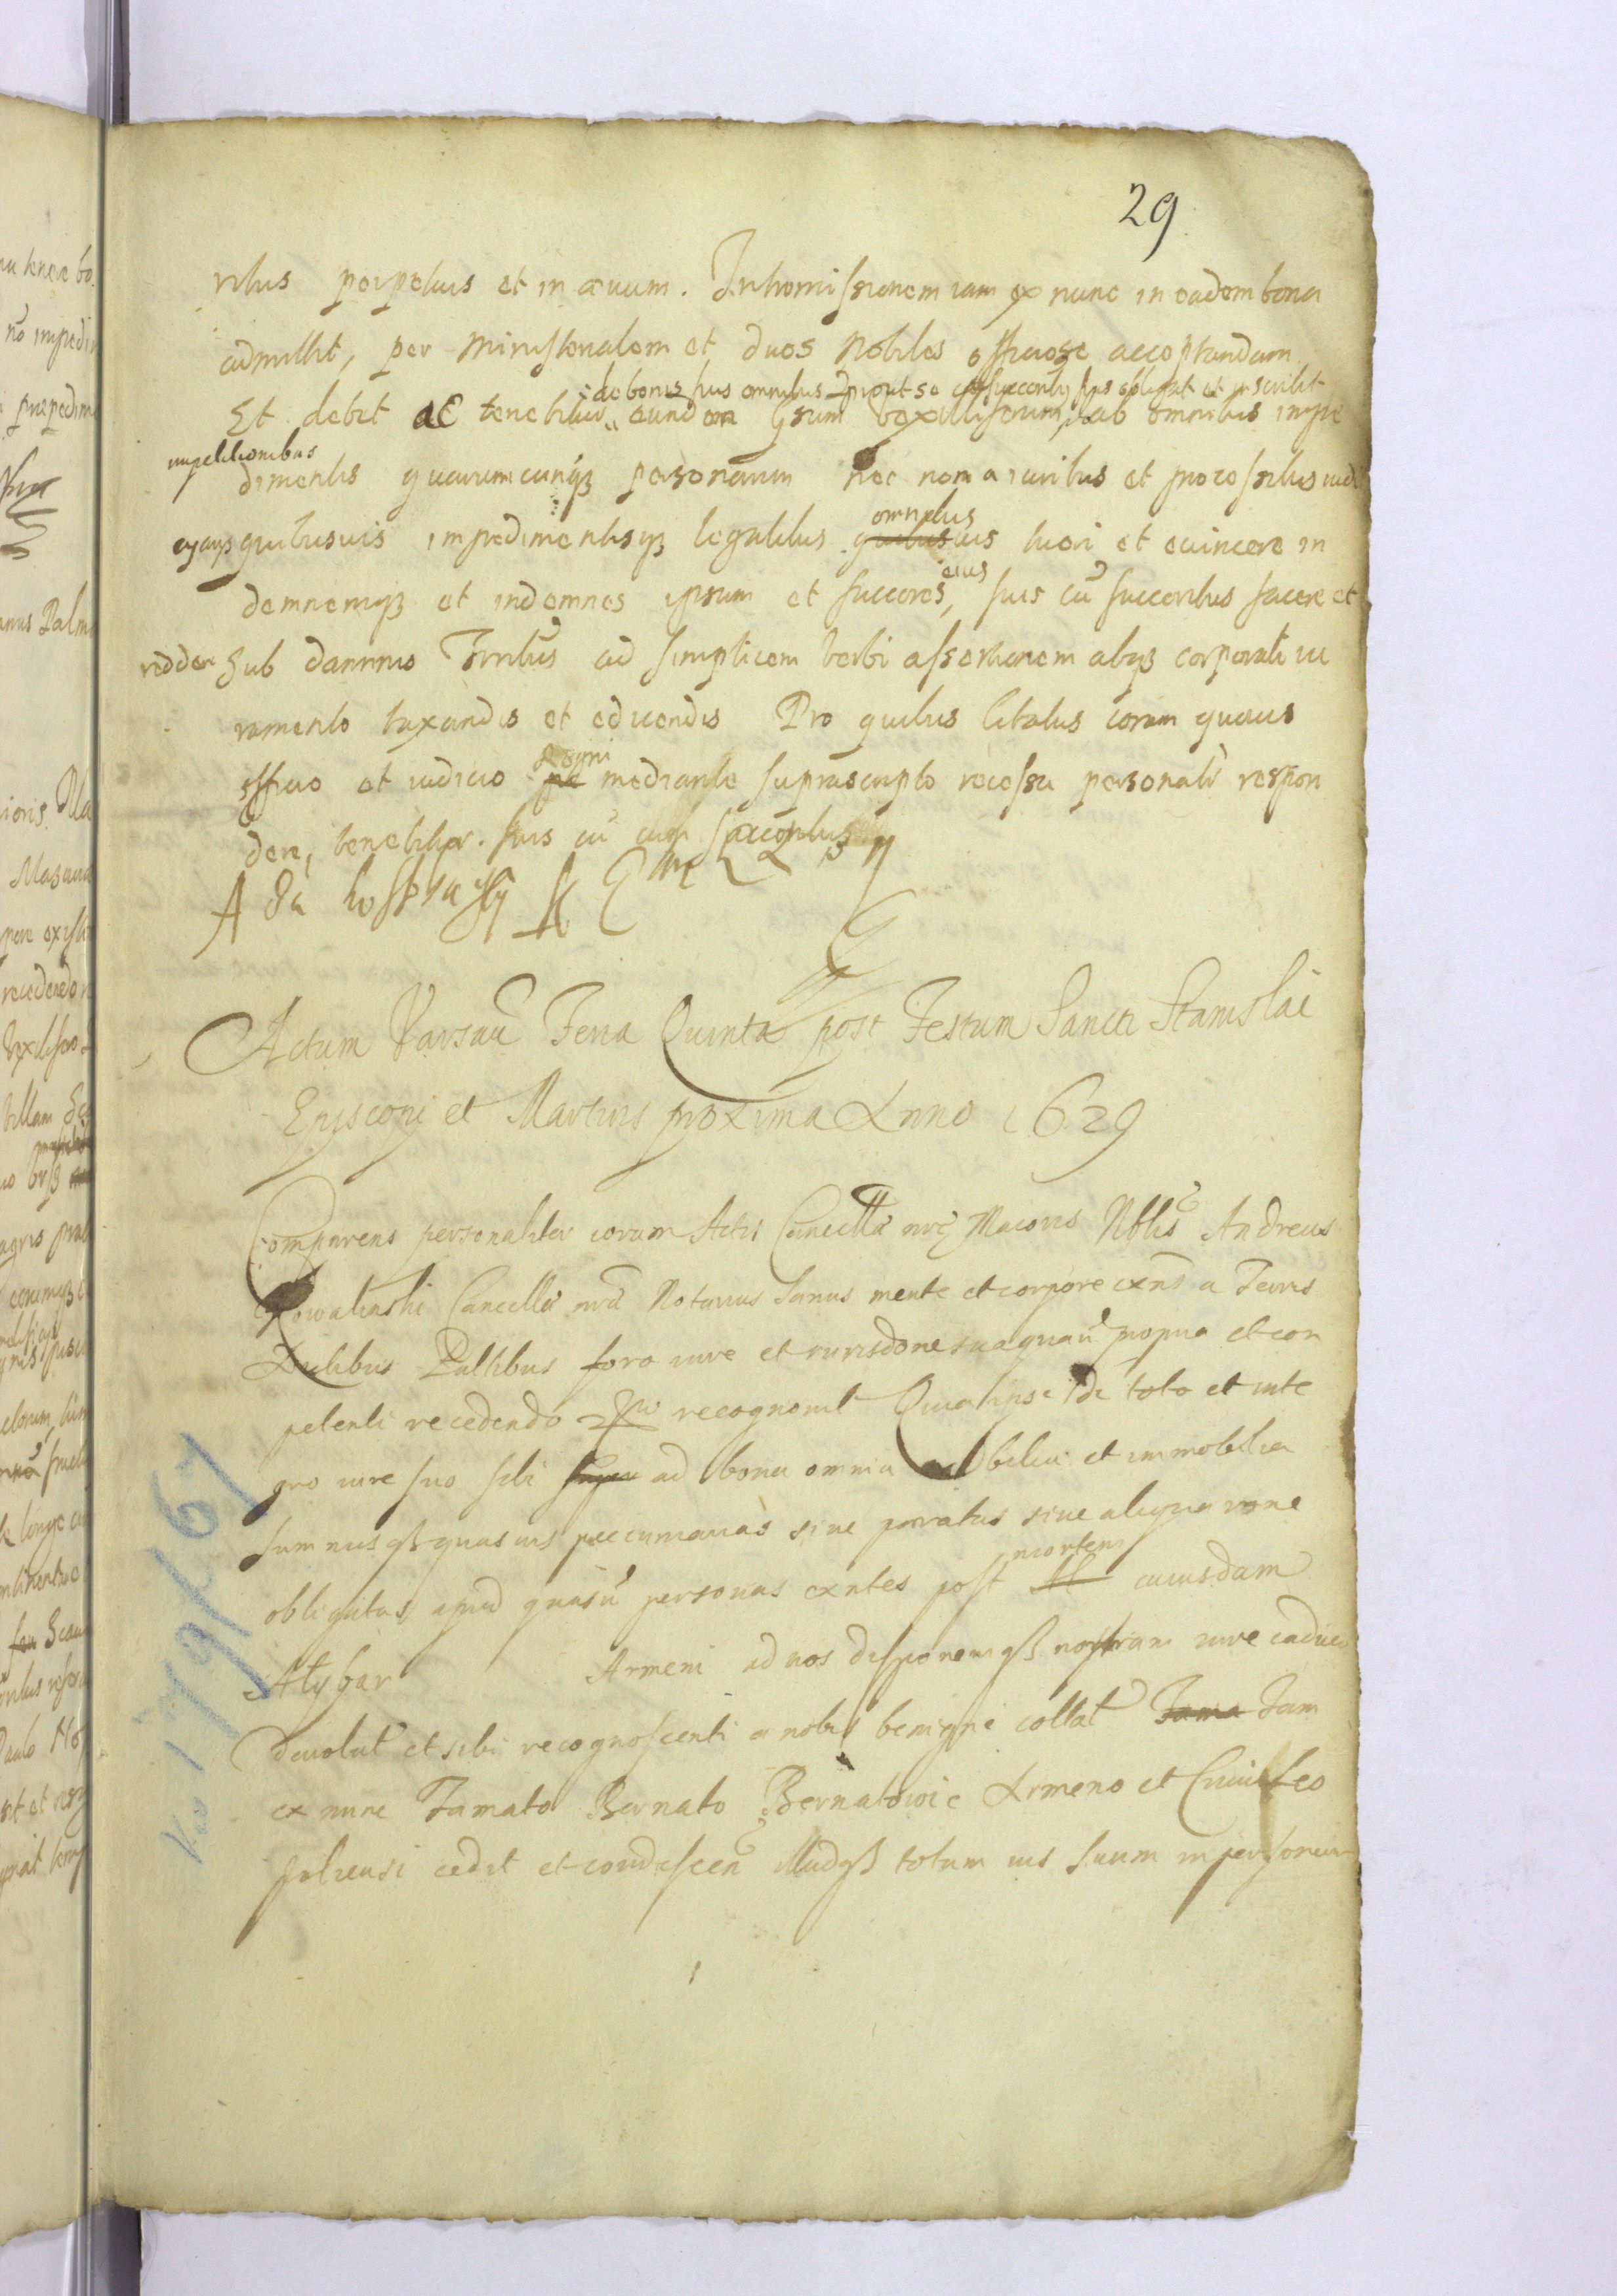 29
ribus perpetuis et in aevum. Intromissionem iam ex nunc in eadem bona
admittit, per Ministerialem et duos Nobiles officiose acceptandam
de bonis suis omnibus prout se cum successorib suis obligat et inscribit
Et debet ac tenebitur eundem Gsum Vexilliferum, ab omnibus impe
impetitionibus
dimentis quarumcunqz personarum nec non a iuribus et processibus
quibusvis impedimentisqz legalibus quibusvis omnibus tueri et evincere in
demnemqz et indemnes ipsum et succores eius, suis cū succoribus facere et
redder Sub damnis Trribus ad simplicem verbi assertionem absqz corporali iu
ramento taxandis et educendis Pro quibus citatus coram quovis
officio et iudicio Regni mediante suprascripto recessu personalr respon
dere, tenebitur. suis cū succoribus
Actum Varsav Feria Quinta post Festum Sancti Stanislai
Episcopi et Martiris proxima Anno 1629
Comparens personaliter coram Actis Cancella nrae Maioris Nblis Andreas
Kowalinski Cancella nrae Notarius Sanus mente et corpore exns a Terris
Dulibus Paltibus foro iure et iurisdone sua quavis propria et com
petenti recedendo recognovit Quia ipse de toto et inte
gro iure suo sibi ad bona omnia mobilia et immobilia
summasqz quasvis peccuniarias sive paratas sive aliqua rone
obligatas, apud quasvis personas exntes post mortem cuiusdam
Atybar Armeni ad nos disponemqz nostram iure caduco
devolut et sibi recognoscenti a nobis benigne collat Fama Fam
ex nunc Famato Bernato Bernatowic Armeno et Civi Leo
poliensi cedit et condescen illudqz totum ius suum in personam
No 179/167